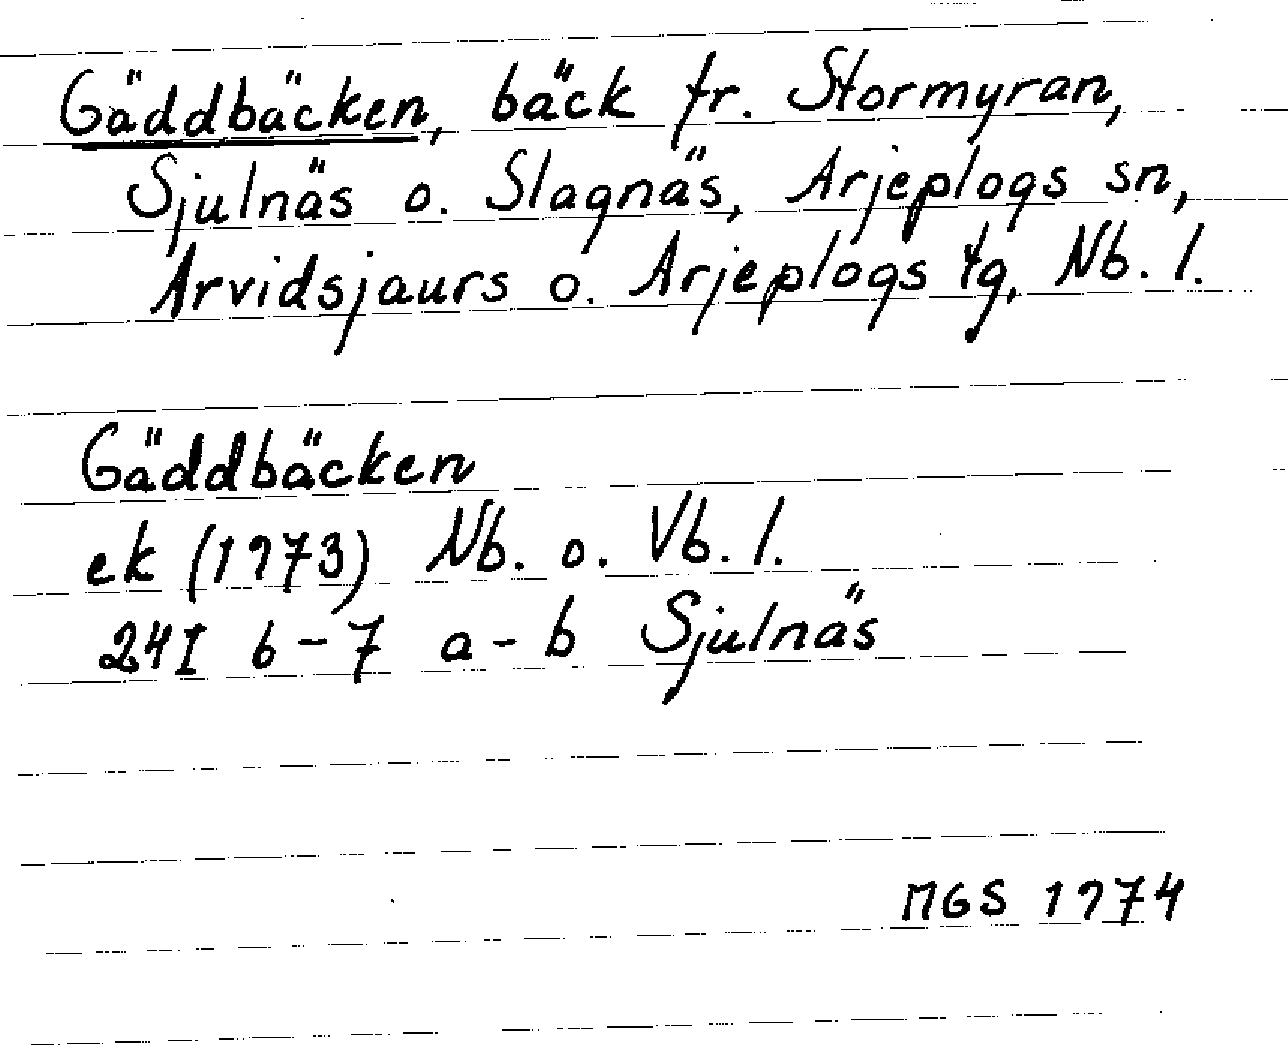 Gäddbäcken, bäck fr. Stormyran,
Sjulnäs o. Slagnäs, Arjeplogs sn,
Arvidsjaurs o. Arjeplogs tg, Nb. l.
Gäddbäcken
ek (1973) Nb. o. Vb. l.
24I 6-7 a-b Sjulnäs
MGS 1974